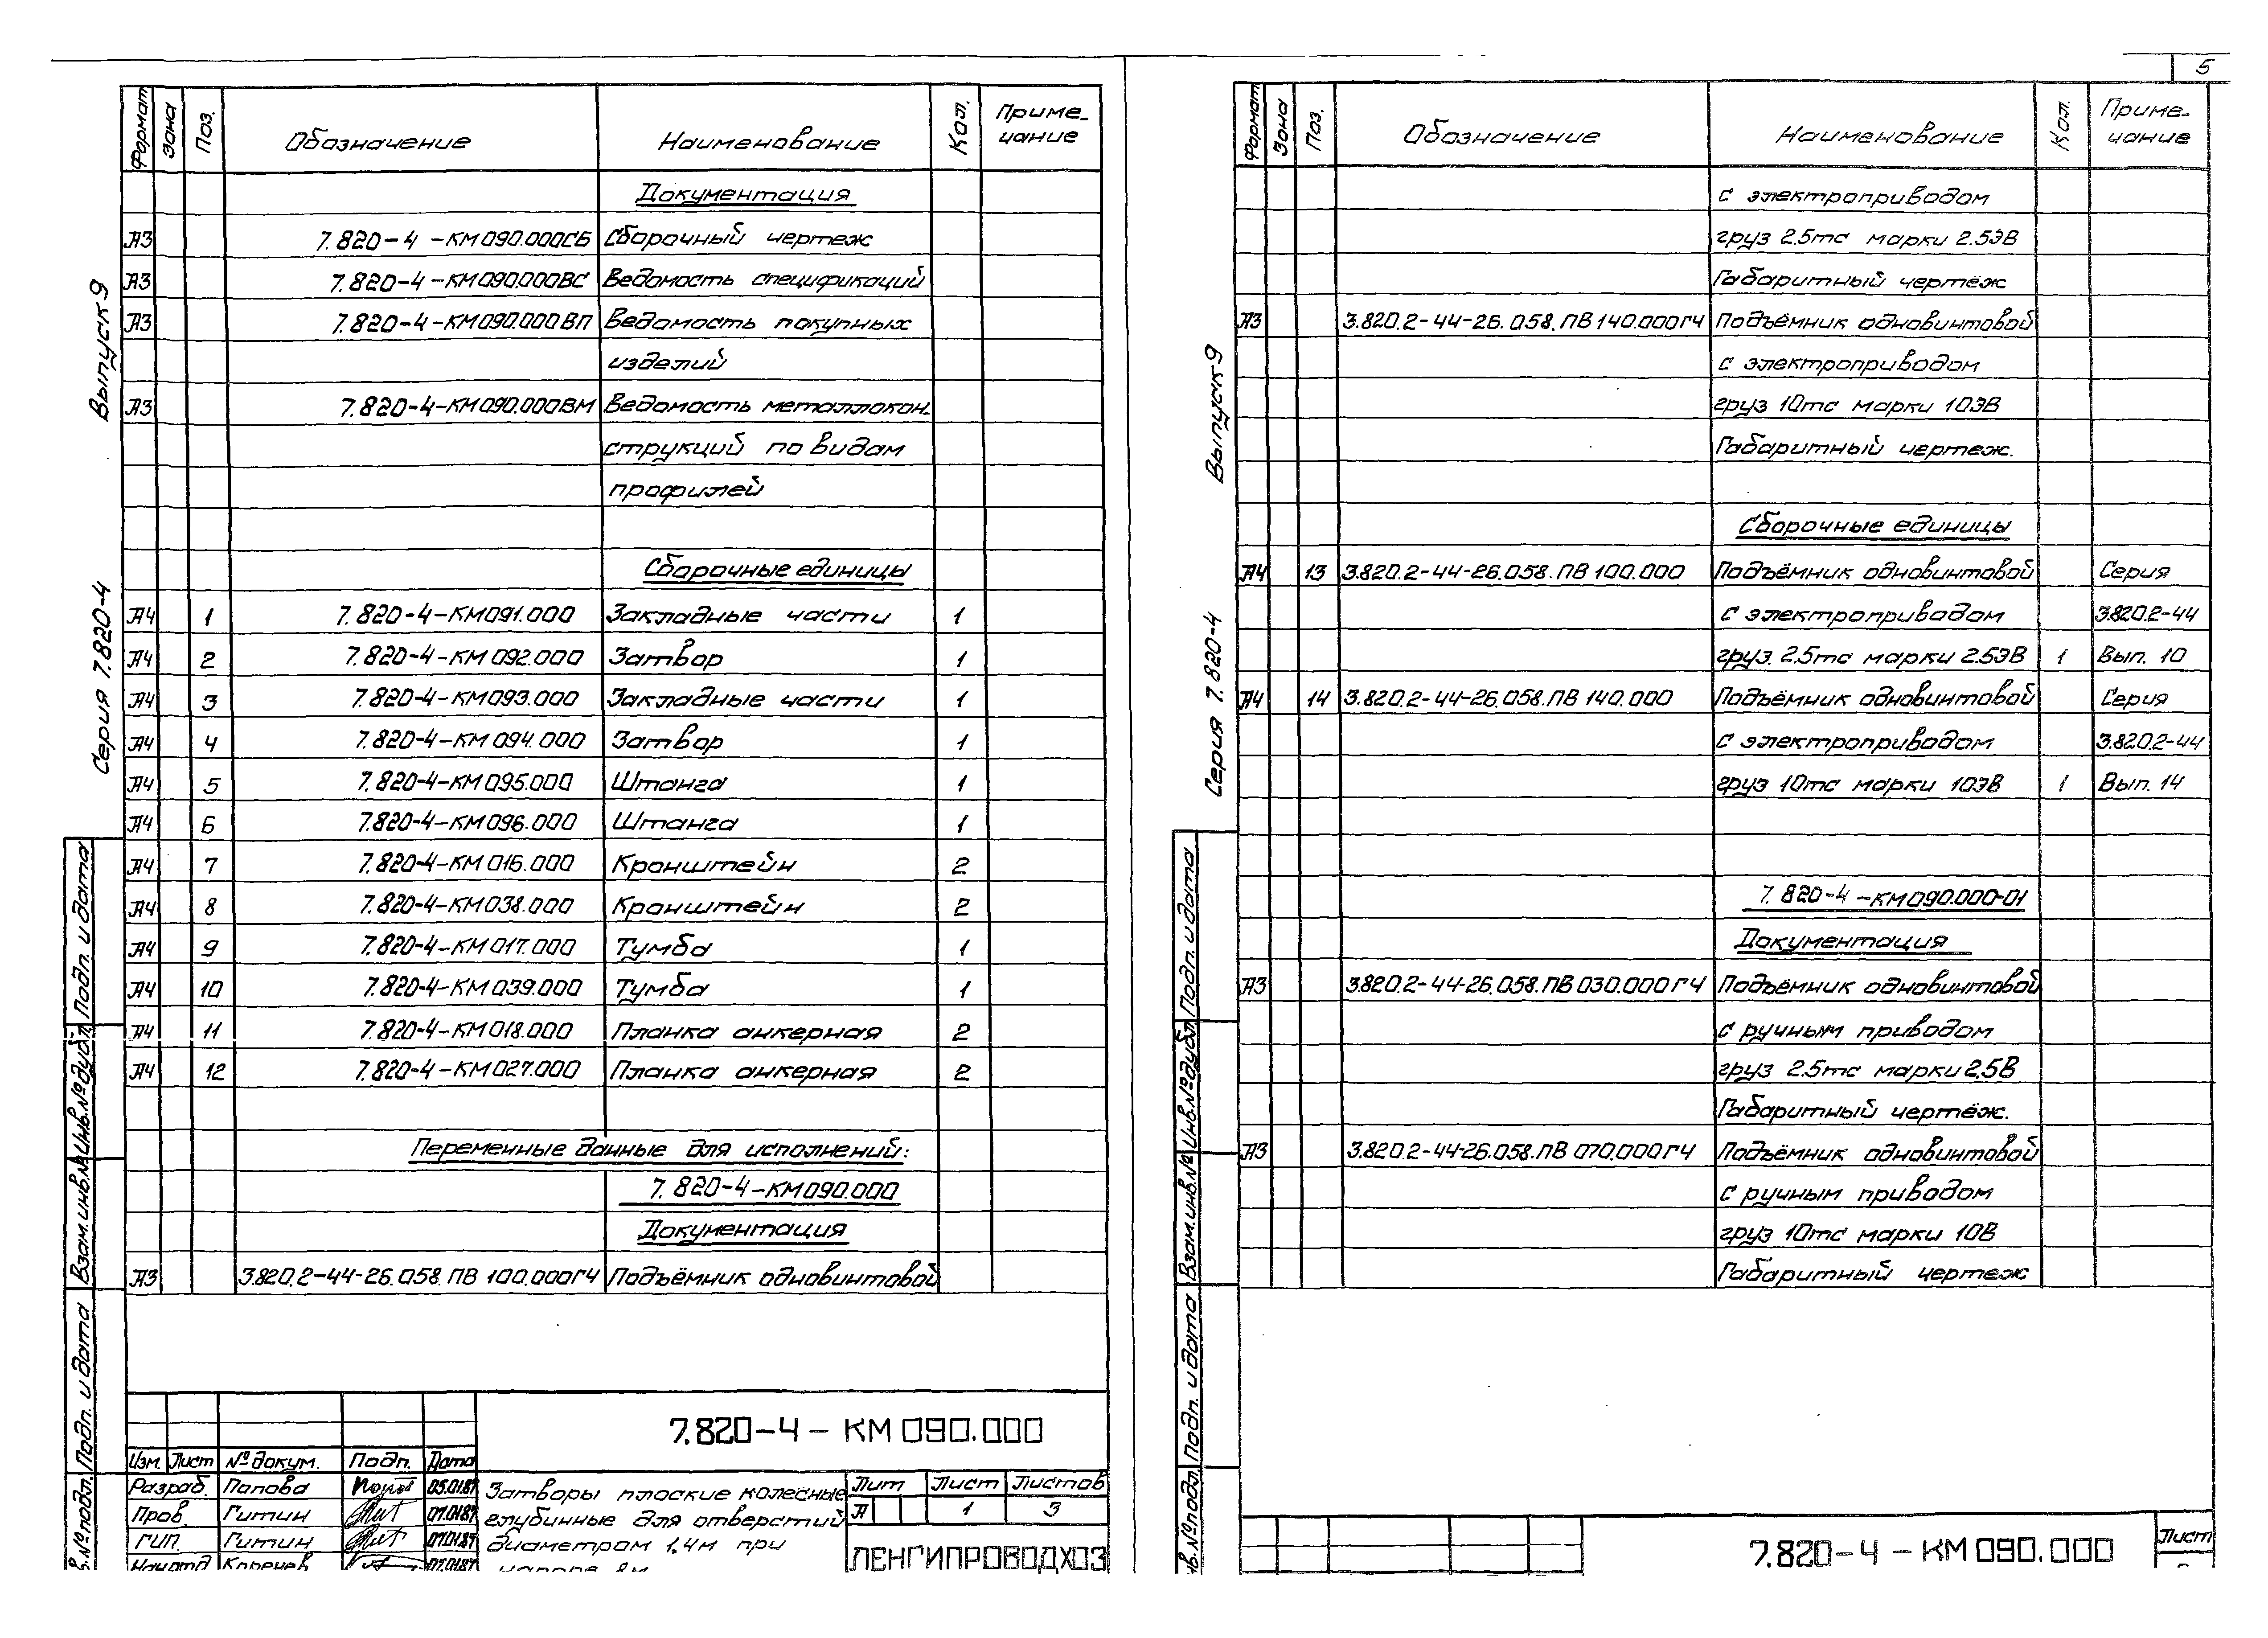 5
Выпуск 9
Серия 7.820-4
Формат Зона Поз. Обозначение Наименование Кол. Приме-
чание
Документация
А3 7.820-4-КМ090.000СБ Сборочный чертеж
А3 7.820-4-КМ090.000ВС Ведомость спецификаций
А3 7.820-4-КМ090.000ВП Ведомость покупных
изделий
А3 7.820-4-КМ090.000ВМ Ведомость металлокон-
струкций по видам
профилей
Сборочные единицы
А4 1 7.820-4-КМ091.000 Закладные части 1
А4 2 7.820-4-КМ092.000 Затвор 1
А4 3 7.820-4-КМ093.000 Закладные части 1
А4 4 7.820-4-КМ094.000 Затвор 1
А4 5 7.820-4-КМ095.000 Штанга 1
А4 6 7.820-4-КМ096.000 Штанга 1
А4 7 7.820-4-КМ016.000 Кронштейн 2
А4 8 7.820-4-КМ038.000 Кронштейн 2
А4 9 7.820-4-КМ017.000 Тумба 1
А4 10 7.820-4-КМ039.000 Тумба 1
А4 11 7.820-4-КМ018.000 Планка анкерная 2
А4 12 7.820-4-КМ027.000 Планка анкерная 2
Переменные данные для исполнений:
7.820-4-КМ090.000
Документация
А3 3.820.2-44-26.058.ПВ 100.000ГЧ Подъёмник одновинтовой
Подп. и дата
Инв.№дубл.
Взам.инв.№
Подп. и дата
7.820-4-КМ090.000
Изм. Лист № докум. Подп. Дата
Разраб. Попова 05.01.87
Пров. Гитин 07.01.87
ГИП. Гитин 07.01.87
07.01.87
Затворы плоские колёсные
глубинные для отверстий
диаметром 1,4м при
Лит Лист Листов
А 1 3
ЛЕНГИПРОВОДХОЗ
Выпуск 9
Серия 7.820-4
Формат Зона Поз. Обозначение Наименование Кол. Приме-
чание
с электроприводом
груз 2.5тс марки 2.5ЭВ
Габаритный чертёж
А3 3.820.2-44-26.058.ПВ 140.000ГЧ Подъёмник одновинтовой
с электроприводом
груз 10тс марки 10ЭВ
Габаритный чертеж.
Сборочные единицы
А4 13 3.820.2-44-26.058.ПВ 100.000 Подъёмник одновинтовой Серия
с электроприводом 3.820.2-44
груз. 2.5тс марки 2.5ЭВ 1 Вып. 10
А4 14 3.820.2-44-26.058.ПВ 140.000 Подъёмник одновинтовой Серия
с электроприводом 3.820.2-44
груз 10тс марки 10ЭВ 1 Вып. 14
7.820-4-КМ090.000-01
Документация
А3 3.820.2-44-26.058.ПВ 030.000ГЧ Подъёмник одновинтовой
с ручным приводом
груз 2.5тс марки 2,5В
Габаритный чертёж.
А3 3.820.2-44-26.058.ПВ 070.000ГЧ Подъёмник одновинтовой
с ручным приводом
груз 10тс марки 10В
Габаритный чертеж
Подп. и дата
Инв.№дубл.
Взам.инв.№
Подп. и дата
7.820-4-КМ090.000
Лист